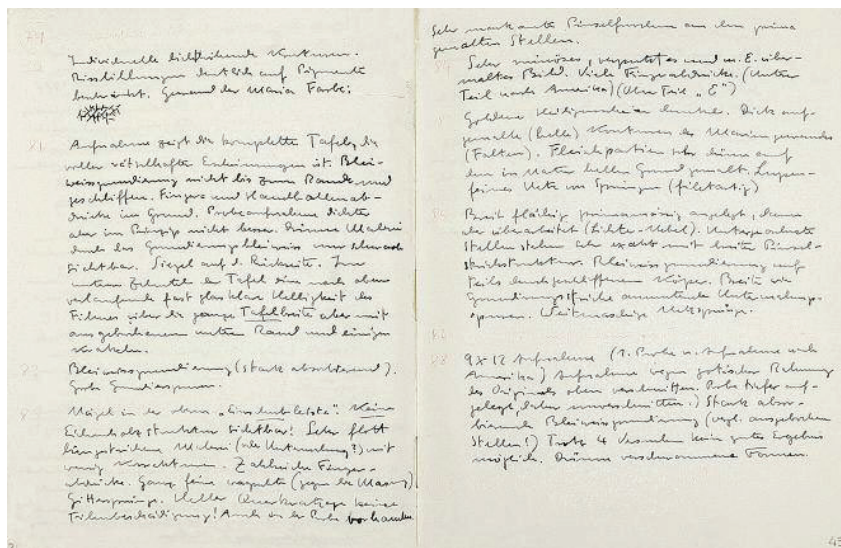 Individuelle
Rissbildungen deutlich auf Pigmente
der Maria Farbe:
81 Aufnahme zeigt die komplette Tafel, die
voller rätselhafte Erscheinungen ist. Blei-
weissgrundierung nicht bis zum Rande und
geschliffen. Finger und Handballenab-
drücke im Grund. Probeaufnahme dichter
aber im Prinzip nicht besser. Dünne Malerei
durch das Grundierungsbleiweiss nur schwach
sichtbar. Siegel auf d. Rückseite. Im
unteren der Tafel eine nach oben
verlaufende fast glasklare Helligkeit des
Filmes über die ganze Tafelbreite aber mit
unteren Rand und einigen
Bleiweissgrundierung (stark absorbierend).
Grobe
Nägel in der oberen „Einschubleiste". Keine
Eichenholzstruktur sichtbar! Sehr flott
Malerei (oder Untermalung?) mit
wenig Korrekturen. Zahlreiche Finger-
abdrücke. Ganz feine (gegen die Maserung)
Gittersprünge. Heller keine
Filmbeschädigung! Auch in der Probe vorhanden
Sehr markante Pinselfurchen an den prima
gemalten Stellen.
Sehr ruinöses, verputztes und m. E. über-
maltes Bild. Viele Fingerabdrücke. (Unterer
Teil nach Amerika) (Obere Teil „E")
Goldene Heiligenscheine dunkel. Dick auf-
gemalte (helle) Konturen des Mariengewandes
(Falten). Fleischpartien sehr dünn auf
den in Natur hellen Grund gemalt. Lupen-
feines Netz von Sprüngen (filetartig)
Breit flächig angelegt, dann
aber überarbeitet (Lichter-Nebel). Untergeordnete
Stellen stehen aber exakt mit breiter Pinsel-
strichstruktur. Bleiweissgrundierung auf
teils durchgeschliffenem Körper. Breite wie
Grundierungsstriche anmutende Untermalungs-
spuren. Weitmaschige Netzsprünge.
88 9 x 12 Aufnahme (1. Probe u. Aufnahme nach
Amerika) Aufnahme wegen gotischer Rahmung
des Originals oben verschnitten. Probe tiefer auf-
gelegt, daher unverschnitten.) Stark absor-
bierende Bleiweissgrundierung (vergl. ausgebrochene
Stellen!) Trotz 4 Versuchen kein gutes Ergebnis
möglich. Dünne verschwommene Formen.
43